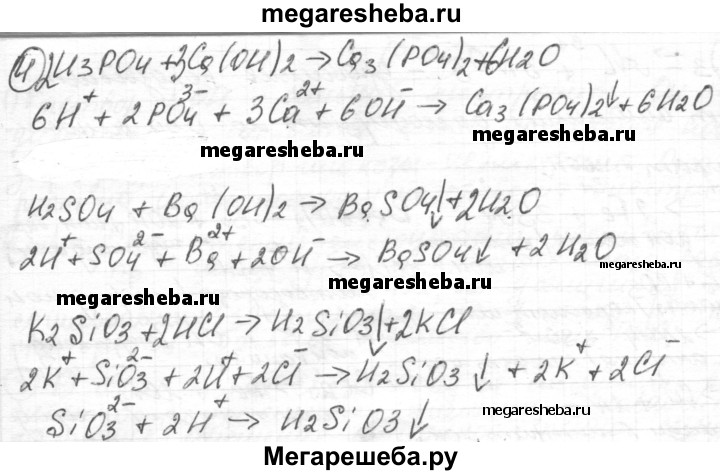 megaresheba.ru
④ 2H3PO4 + 3Ca(OH)2 → Ca3(PO4)2 + 6H2O
6H⁺ + 2PO4³⁻ + 3Ca²⁺ + 6OH⁻ → Ca3(PO4)2↓ + 6H2O
megaresheba.ru
megaresheba.ru
H2SO4 + Ba(OH)2 → BaSO4↓ + 2H2O
2H⁺ + SO4²⁻ + Ba²⁺ + 2OH⁻ → BaSO4↓ + 2H2O
megaresheba.ru
megaresheba.ru
K2SiO3 + 2HCl → H2SiO3↓ + 2KCl
2K⁺ + SiO3²⁻ + 2H⁺ + 2Cl⁻ → H2SiO3↓ + 2K⁺ + 2Cl⁻
SiO3²⁻ + 2H⁺ → H2SiO3↓
megaresheba.ru
Мегарешеба.ру